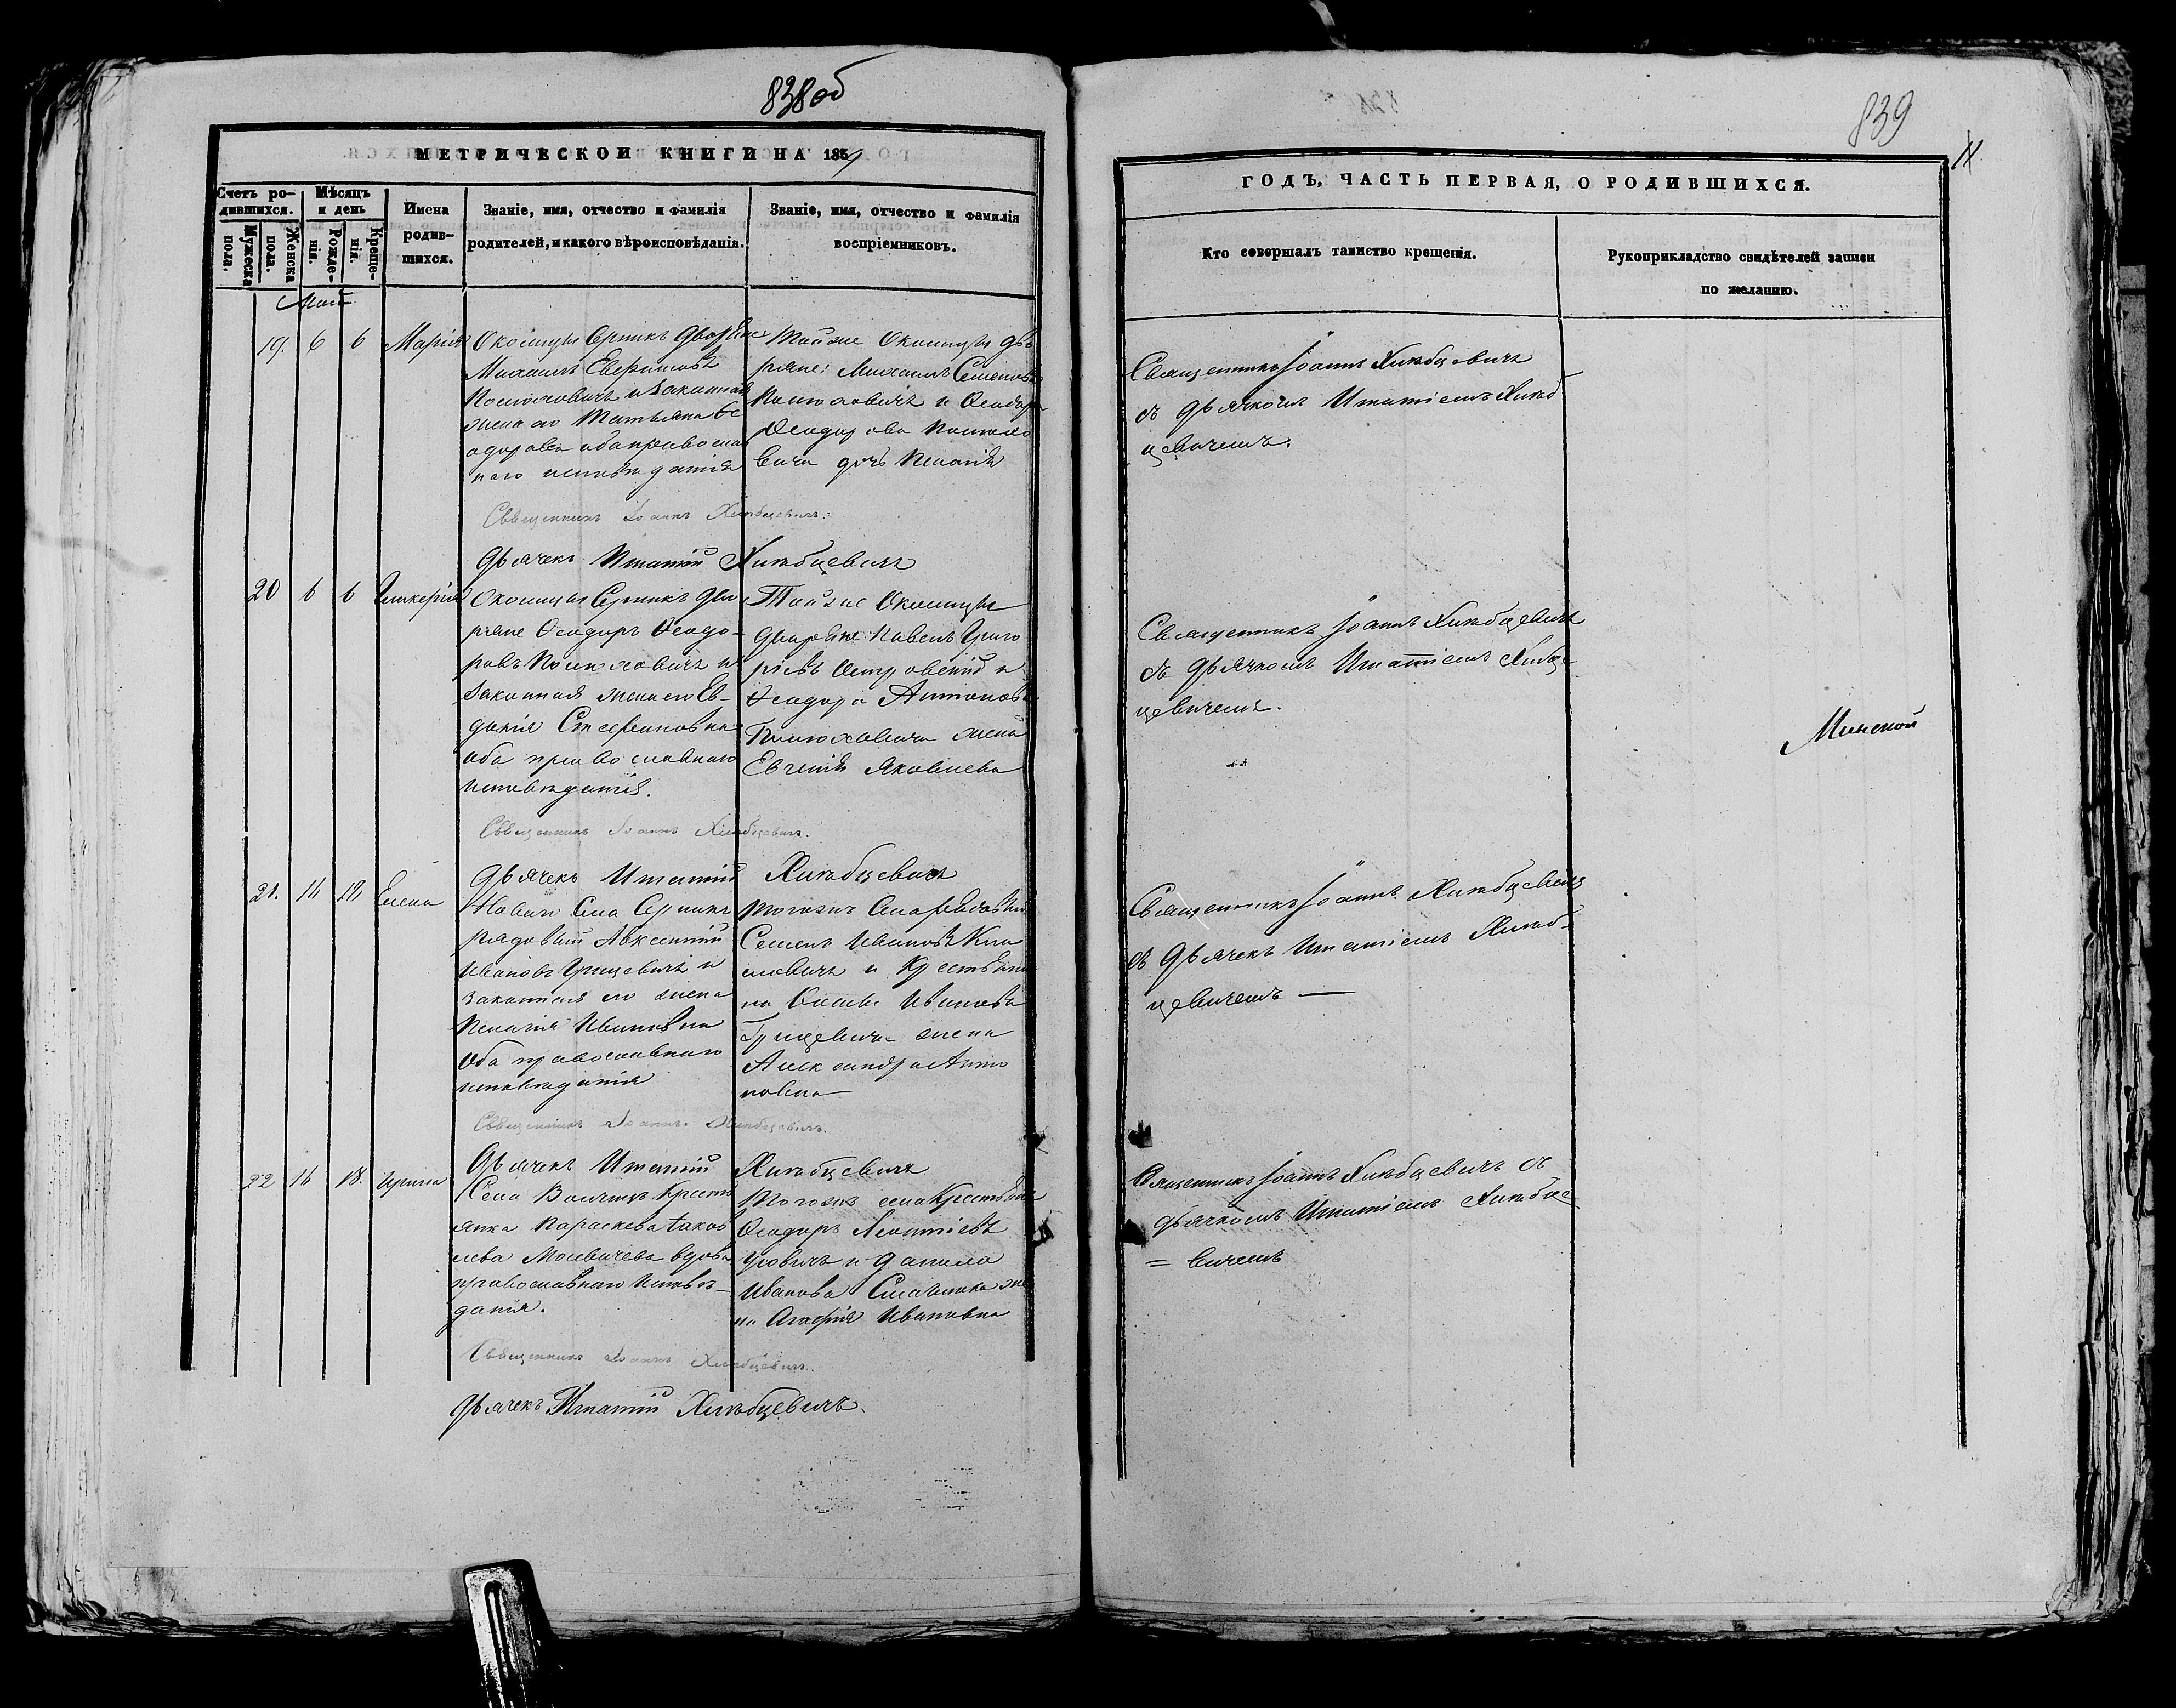 838об
МЕТРИЧЕСКОЙ КНИГИ НА 1859
Счетъ ро-
дившихся.
Мужеска
пола.
Женска
пола.
Мѣсяцъ
и день
Рожде-
нія.
Креще-
нія.
Имена
родив-
шихся.
Званіе, имя, отчество и фамилія
родителей, и какого вѣроисповѣданія.
Званіе, имя, отчество и фамилія
воспріемниковъ.
Май
19. 6 6 Марія
Околицы Серникъ дворяне
Михаилъ
Полюховичъ и законная
жена его Татьяна Ѳе
одорова оба православ
наго исповѣданія
Тойже Околицы дво
ряне: Михаилъ Семеновъ
Полюховичъ и Ѳеодора
Ѳеодорова Полюхо
вича дочь Пелагія
Священникъ Іоаннъ Хлѣбцевичъ.
Дьячекъ Игнатій Хлѣбцевичъ
20 6 6 Гликерія
Околицы Серникъ дво
ряне Ѳеодоръ Ѳеодо-
ровъ Полюховичъ и
законная жена его Ев-
докія Стефановна
оба православнаго
исповѣданія.
Тойже Околицы
дворяне: Павелъ Григо
рьевъ Островскій и
Ѳеодора Антонова
Полюховича жена
Евгенія Яковлева
Священникъ Іоаннъ Хлѣбцевичъ.
Дьячекъ Игнатій Хлѣбцевичъ
21. 11 12 Елена
Села Серникъ
рядовый Авксентій
Ивановъ Грицевичъ и
законная его жена
Пелагія Ивановна
Оба православнаго
исповѣданія
тогожъ Села рядовый
Семенъ Ивановъ
и Крестьяни
на Ивановa
Грицевича жена
Александра Анто
новна
Священникъ Іоаннъ Хлѣбцевичъ.
Дьячекъ Игнатій Хлѣбцевичъ
22 16 18. Ирина
Села Крестъ
янка Параскева Іаков
лева вдова
православнаго Исповѣ-
данія.
Тогожъ села Крестьяне
Ѳеодоръ Леонтіевъ
и Данила
Иванова же
на Агафія Ивановна
Священникъ Іоаннъ Хлѣбцевичъ.
Дьячекъ Игнатій Хлѣбцевичъ.
839
ГОДЪ, ЧАСТЬ ПЕРВАЯ, О РОДИВШИХСЯ.
Кто совершалъ таинство крещенія.
Рукоприкладство свидѣтелей записи
по желанію.
Священникъ Іоаннъ Хлѣбцевичъ
съ дьячкомъ Игнатіемъ Хлѣб
цевичемъ.
Священникъ Іоаннъ Хлѣбцевичъ
съ дьячкомъ Игнатіемъ Хлѣб
цевичемъ.
Минской
Священникъ Іоаннъ Хлѣбцевичъ
съ Дьячекъ Игнатіемъ Хлѣб-
цевичемъ —
Священникъ Іоаннъ Хлѣбцевичъ съ
дьячкомъ Игнатіемъ Хлѣбце
= вичемъ